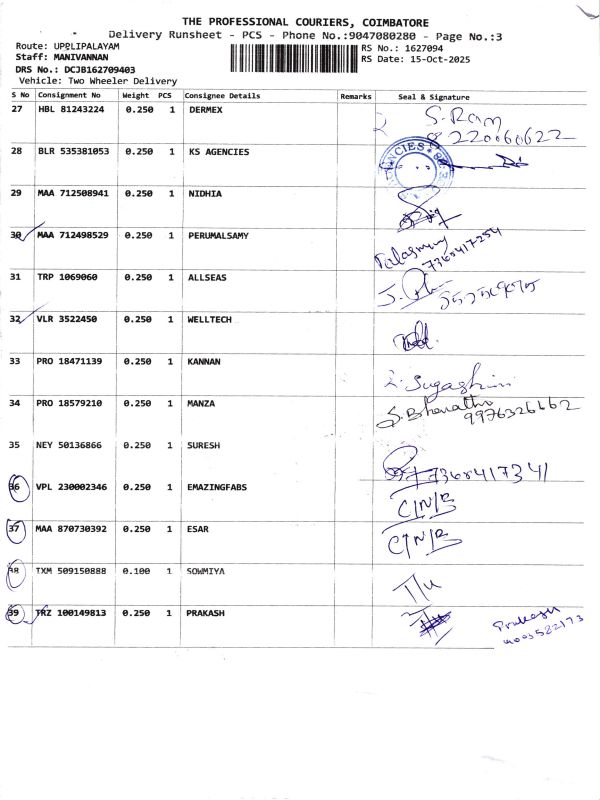 THE PROFESSIONAL COURIERS, COIMBATORE
Delivery Runsheet - PCS - Phone No.:9047080280 - Page No.:3
Route: UPPLIPALAYAM
Staff: MANIVANNAN
DRS No.: DCJB162709403
Vehicle: Two Wheeler Delivery
RS No.: 1627094
RS Date: 15-Oct-2025
S No Consignment No Weight PCS Consignee Details Remarks Seal & Signature
27 HBL 81243224 0.250 1 DERMEX S. Ram
28 BLR 535381053 0.250 1 KS AGENCIES
29 MAA 712508941 0.250 1 NIDHIA
30 MAA 712498529 0.250 1 PERUMALSAMY
31 TRP 1069060 0.250 1 ALLSEAS
32 VLR 3522450 0.250 1 WELLTECH
33 PRO 18471139 0.250 1 KANNAN
34 PRO 18579210 0.250 1 MANZA S. Bharathi 9976326662
35 NEY 50136866 0.250 1 SURESH 7368417341
36 VPL 230002346 0.250 1 EMAZINGFABS C/N/B
37 MAA 870730392 0.250 1 ESAR C/N/B
38 TXM 509150888 0.100 1 SOWMIYA
39 TRZ 100149813 0.250 1 PRAKASH Prakash